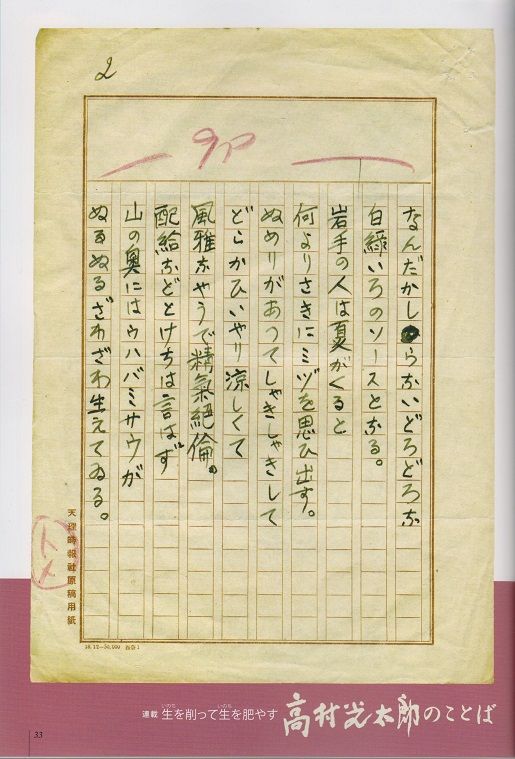 2
9ポ
なんだかしらないどろどろな
白緑いろのソースとなる。
岩手の人は夏がくると
何よりさきにミヅを思ひ出す。
ぬめりがあつてしやきしやきして
どこかひいやり涼しくて
風雅なやうで精氣絶倫。
配給などとけちは言はず
山の奥にはウハバミサウが
ぬるぬるざわざわ生えてゐる。
トメ
天理時報社原稿用紙
18.12—50,000
連載 生を削って生を肥やす 高村光太郎のことば
いのち いのち
33